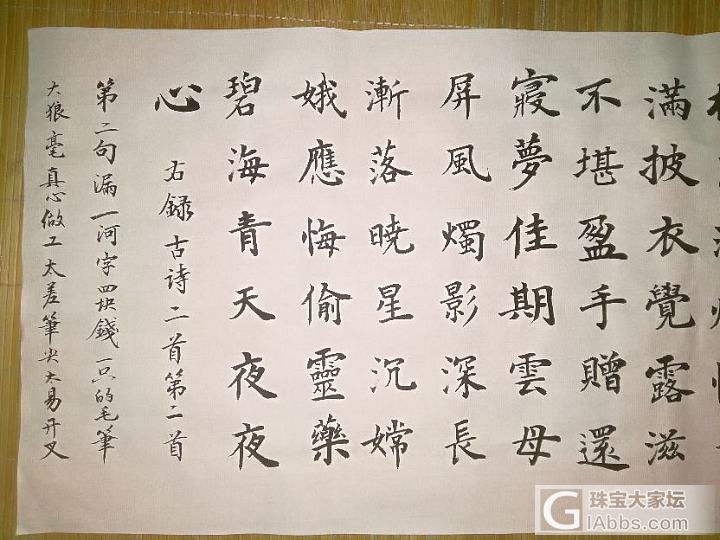 滿披衣覺露滋
不堪盈手贈還
寢夢佳期雲母
屏風燭影深長
漸落曉星沉嫦
娥應悔偷靈藥
碧海青天夜夜
心 右録古诗二首第二首
第二句漏一河字四块錢一只的毛筆
大狼毫真心做工太差筆尖太易开叉
珠宝大家坛
iAbbs.com